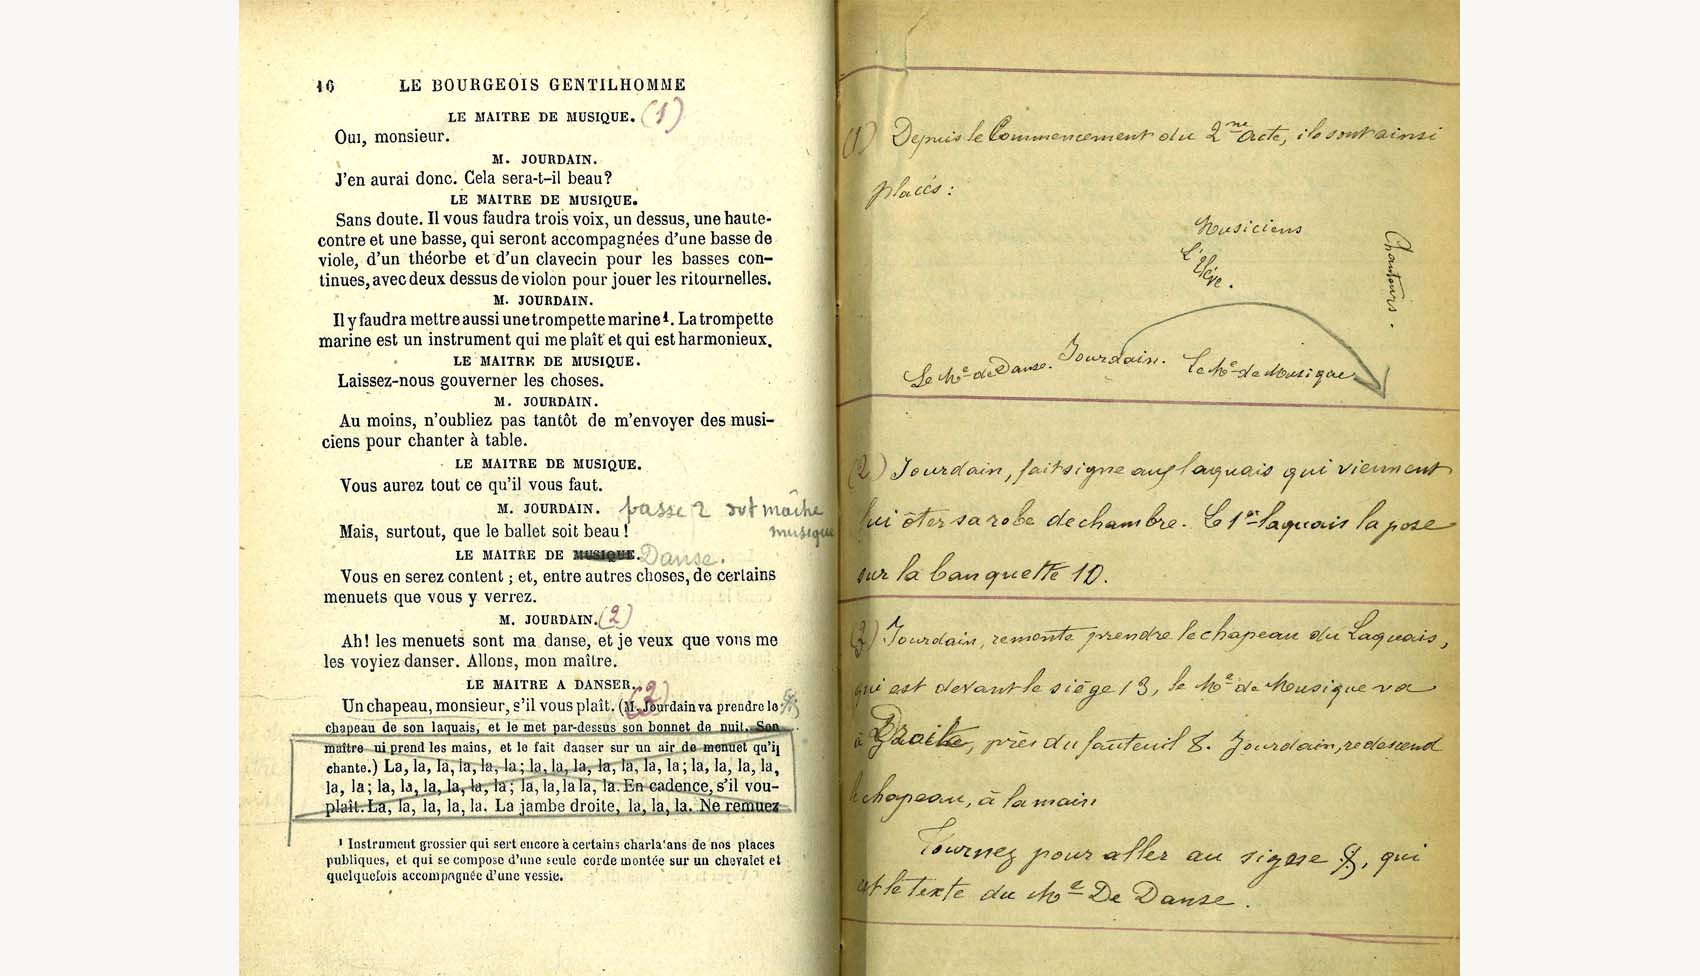 16 LE BOURGEOIS GENTILHOMME
LE MAITRE DE MUSIQUE. (1)
Oui, monsieur.
M. JOURDAIN.
J'en aurai donc. Cela sera-t-il beau?
LE MAITRE DE MUSIQUE.
Sans doute. Il vous faudra trois voix, un dessus, une haute-
contre et une basse, qui seront accompagnées d'une basse de
viole, d'un théorbe et d'un clavecin pour les basses con-
tinues, avec deux dessus de violon pour jouer les ritournelles.
M. JOURDAIN.
Il y faudra mettre aussi une trompette marine¹. La trompette
marine est un instrument qui me plaît et qui est harmonieux.
LE MAITRE DE MUSIQUE.
Laissez-nous gouverner les choses.
M. JOURDAIN.
Au moins, n'oubliez pas tantôt de m'envoyer des musi-
ciens pour chanter à table.
LE MAITRE DE MUSIQUE.
Vous aurez tout ce qu'il vous faut.
M. JOURDAIN. passe 2
musique
Mais, surtout, que le ballet soit beau!
LE MAITRE DE MUSIQUE. Danse.
Vous en serez content; et, entre autres choses, de certains
menuets que vous y verrez.
M. JOURDAIN. (2)
Ah! les menuets sont ma danse, et je veux que vous me
les voyiez danser. Allons, mon maître.
LE MAITRE A DANSER. (3)
Un chapeau, monsieur, s'il vous plaît. (M. Jourdain va prendre le
chapeau de son laquais, et le met par-dessus son bonnet de nuit. Son
maître ui prend les mains, et le fait danser sur un air de menuet qu'il
chante.) La, la, la, la, la, la; la, la, la, la, la, la, la; la, la, la, la,
la, la; la, la, la, la, la, la; la, la, la la, la. En cadence, s'il vou-
plaît. La, la, la, la, la. La jambe droite, la, la, la. Ne remuez
¹ Instrument grossier qui sert encore à certains charla'ans de nos places
publiques, et qui se compose d'une seule corde montée sur un chevalet et
quelquefois accompagnée d'une vessie.
(1) Depuis le Commencement du 2me acte, ils sont ainsi
placés:
Musiciens
L'Elève.
Chanteurs.
Le Me de Danse. Jourdain. Le Me de Musique
(2) Jourdain, fait signe aux laquais qui viennent
lui ôter sa robe de chambre. Le 1er laquais la pose
sur la banquette 10.
(3) Jourdain, remonte prendre le chapeau du Laquais,
qui est devant le siège 13, le Me de Musique va
à Droite, près du fauteuil 8. Jourdain, redescend
le chapeau, à la main
Tournez pour aller au signe, qui
est le texte du Me De Danse.